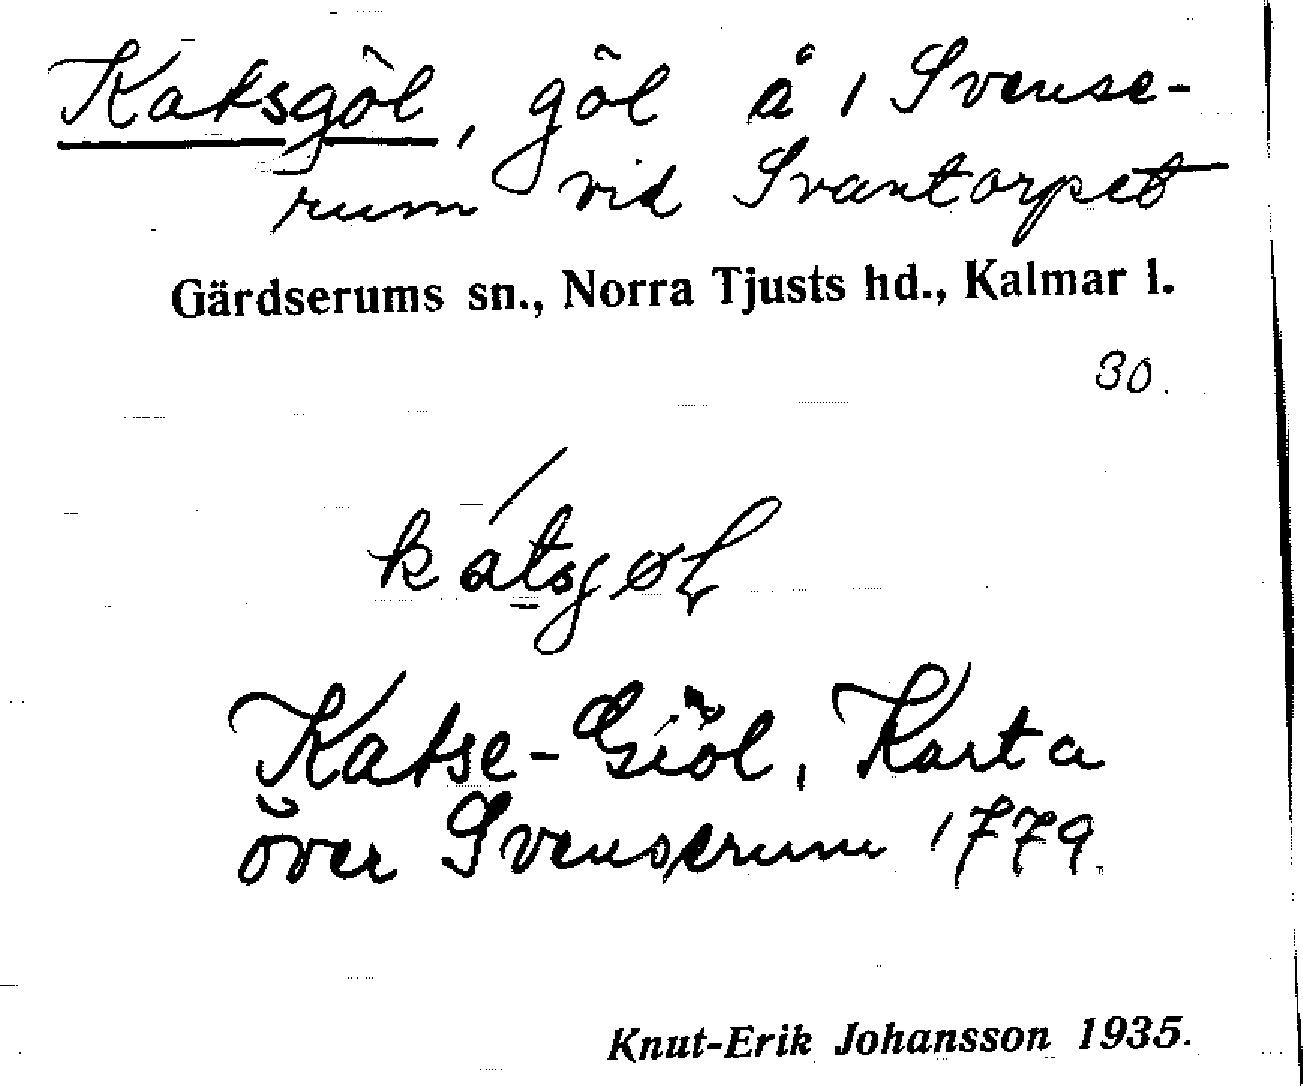 Katsgöl, göl å 1 Svense-
rum vid Svantorpet
Gärdserums sn., Norra Tjusts hd., Kalmar l.
30.
kátsgøL
Katse-Giöl, Karta
över Svenserum 1779.
Knut-Erik Johansson 1935.